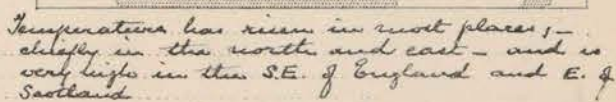 Temperature has risen in most places; –
chiefly in the north and east – and is
very high in the S.E. of England and E. of
Scotland